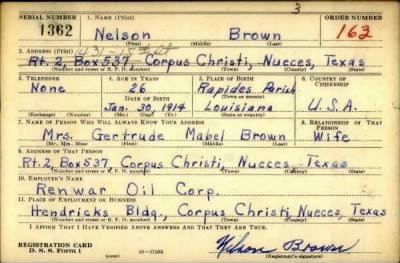 3
SERIAL NUMBER 1. NAME (Print) ORDER NUMBER
1362 Nelson Brown 163
(First) (Middle) (Last)
2. ADDRESS (Print)
Rt. 2, Box 537, Corpus Christi, Nueces, Texas
(Number and street or R. F. D. number) (Town) (County) (State)
3. TELEPHONE 4. AGE IN YEARS 5. PLACE OF BIRTH 6. COUNTRY OF CITIZENSHIP
None 26 Rapides Parish
DATE OF BIRTH (Town or county)
Jan. 30, 1914 Louisiana U.S.A.
(Exchange) (Number) (Mo.) (Day) (Yr.) (State or country)
7. NAME OF PERSON WHO WILL ALWAYS KNOW YOUR ADDRESS 8. RELATIONSHIP OF THAT PERSON
Mrs. Gertrude Mabel Brown Wife
(Mr., Mrs., Miss) (First) (Middle) (Last)
9. ADDRESS OF THAT PERSON
Rt. 2, Box 537, Corpus Christi, Nueces, Texas
(Number and street or R. F. D. number) (Town) (County) (State)
10. EMPLOYER'S NAME
Renwar Oil Corp.
11. PLACE OF EMPLOYMENT OR BUSINESS
Hendricks Bldg., Corpus Christi, Nueces, Texas
(Number and street or R. F. D. number) (Town) (County) (State)
I AFFIRM THAT I HAVE VERIFIED ABOVE ANSWERS AND THAT THEY ARE TRUE.
REGISTRATION CARD
D. S. S. Form 1 (over) Nelson Brown
(Registrant's signature)